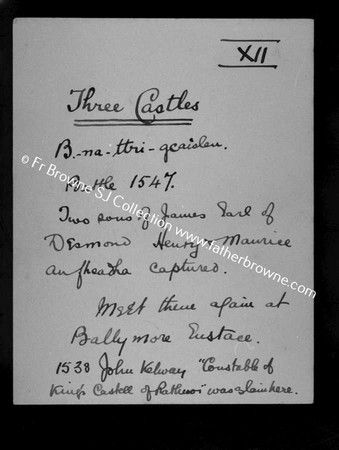 XII
Three Castles
B.-na-ttri-gcaislen.
Battle 1547.
Two sons of James Earl of
Desmond Henry & Maurice
captured.
Meet them again at
Ballymore Eustace.
1538 John Kelway "Constable of
Kings Castell of Rathmoi" was slain here.
© Fr Browne SJ Collection www.fatherbrowne.com